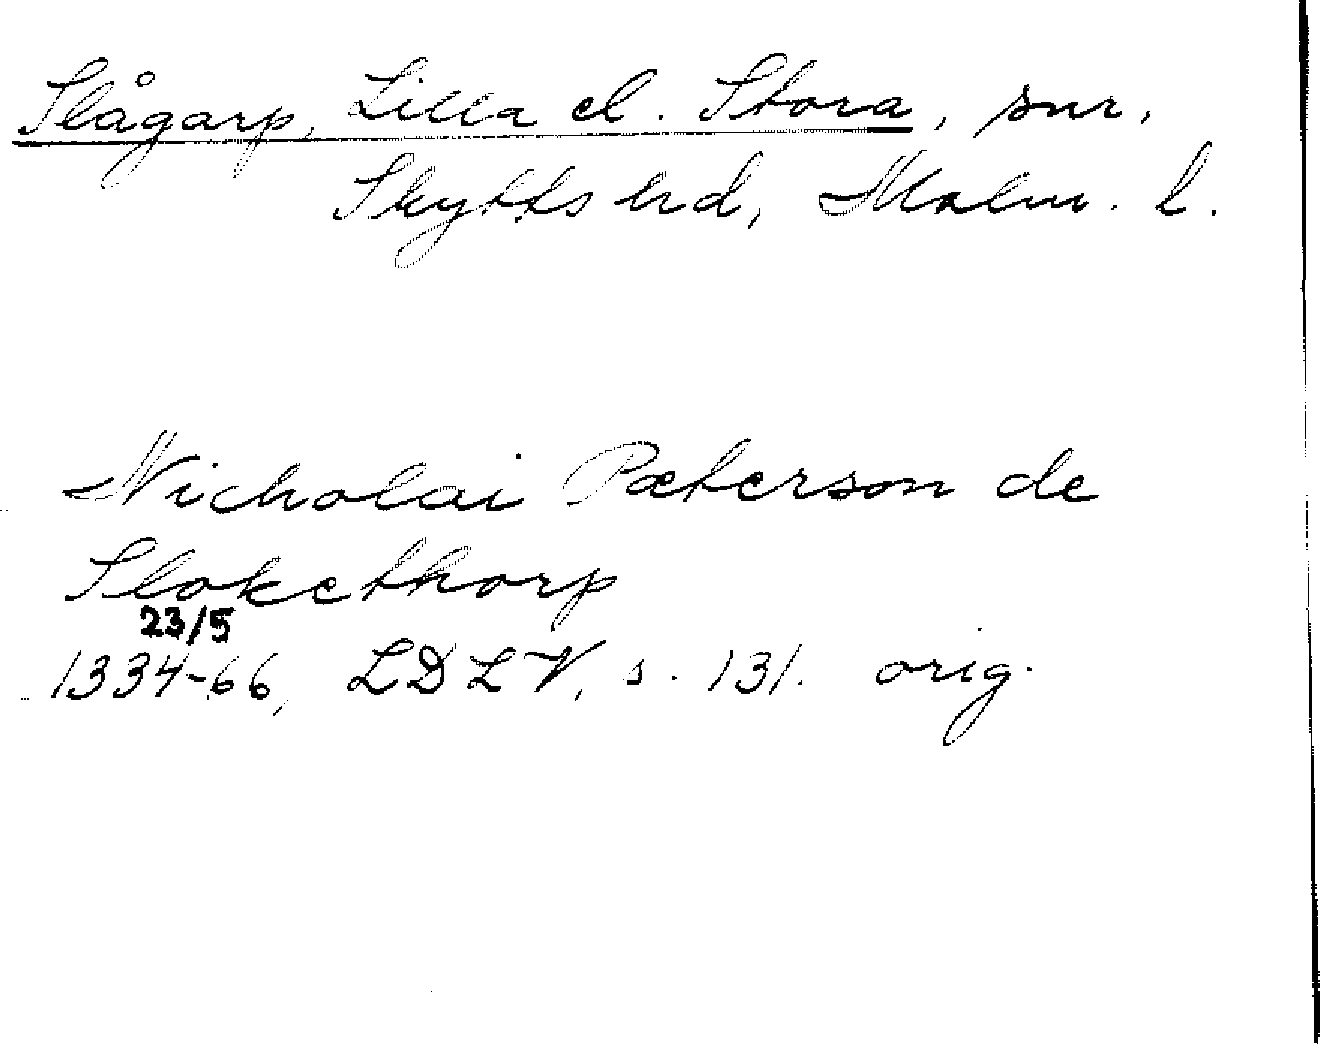 Slågarp, Lilla el. Stora, snr,
Skytts hd, Malm. l.
Nicholai Pæterson de
Slokethorp
23/5
1334-66, LDLV, s. 131. orig.